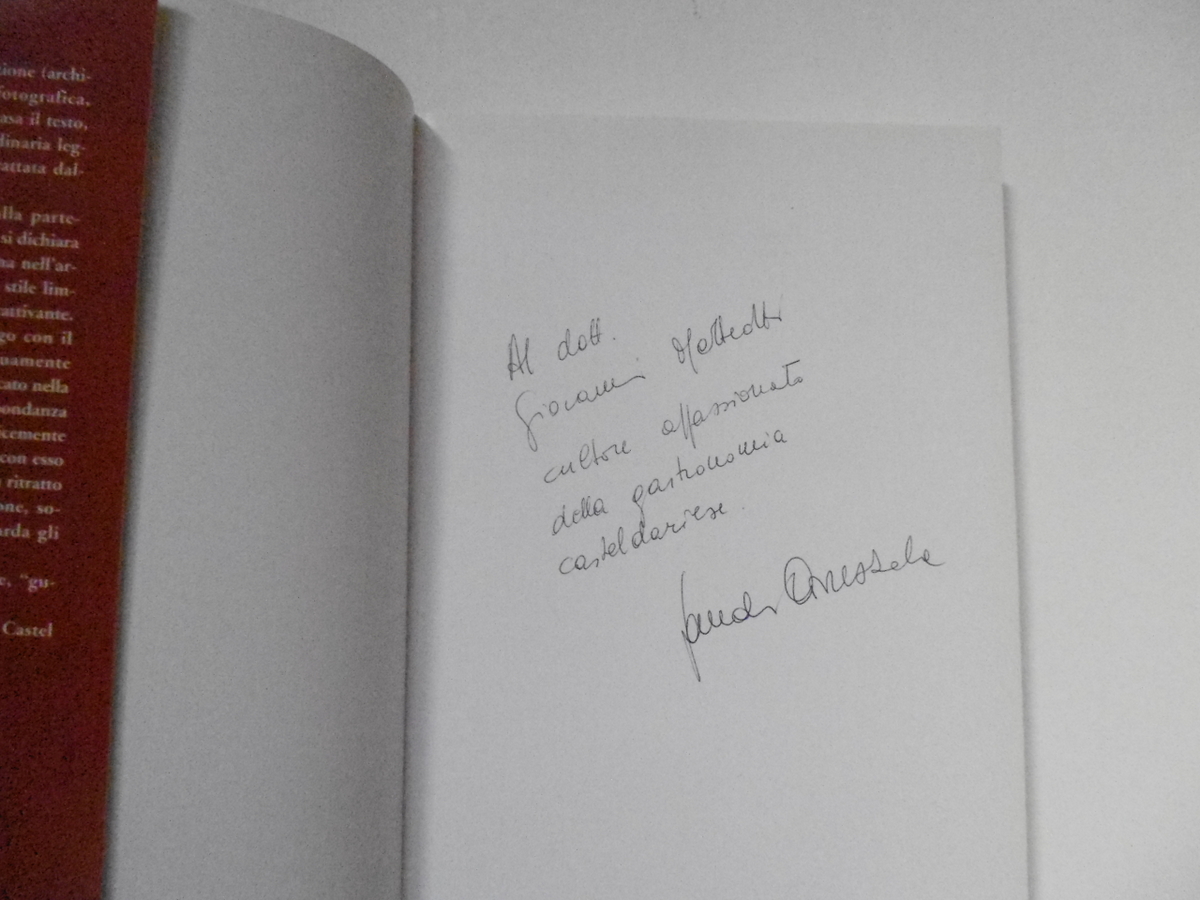 zione (archi-
fotografica,
asa il testo,
dinaria leg-
attata dal-
lla parte-
si dichiara
na nell'ar-
stile lim-
attivante.
go con il
uamente
cato nella
ondanza
icemente
con esso
ritratto
one, so-
arda gli
e, "gu-
Castel
Al dott.
Giovanni Matteotti
cultore appassionato
della gastronomia
casteldariese.